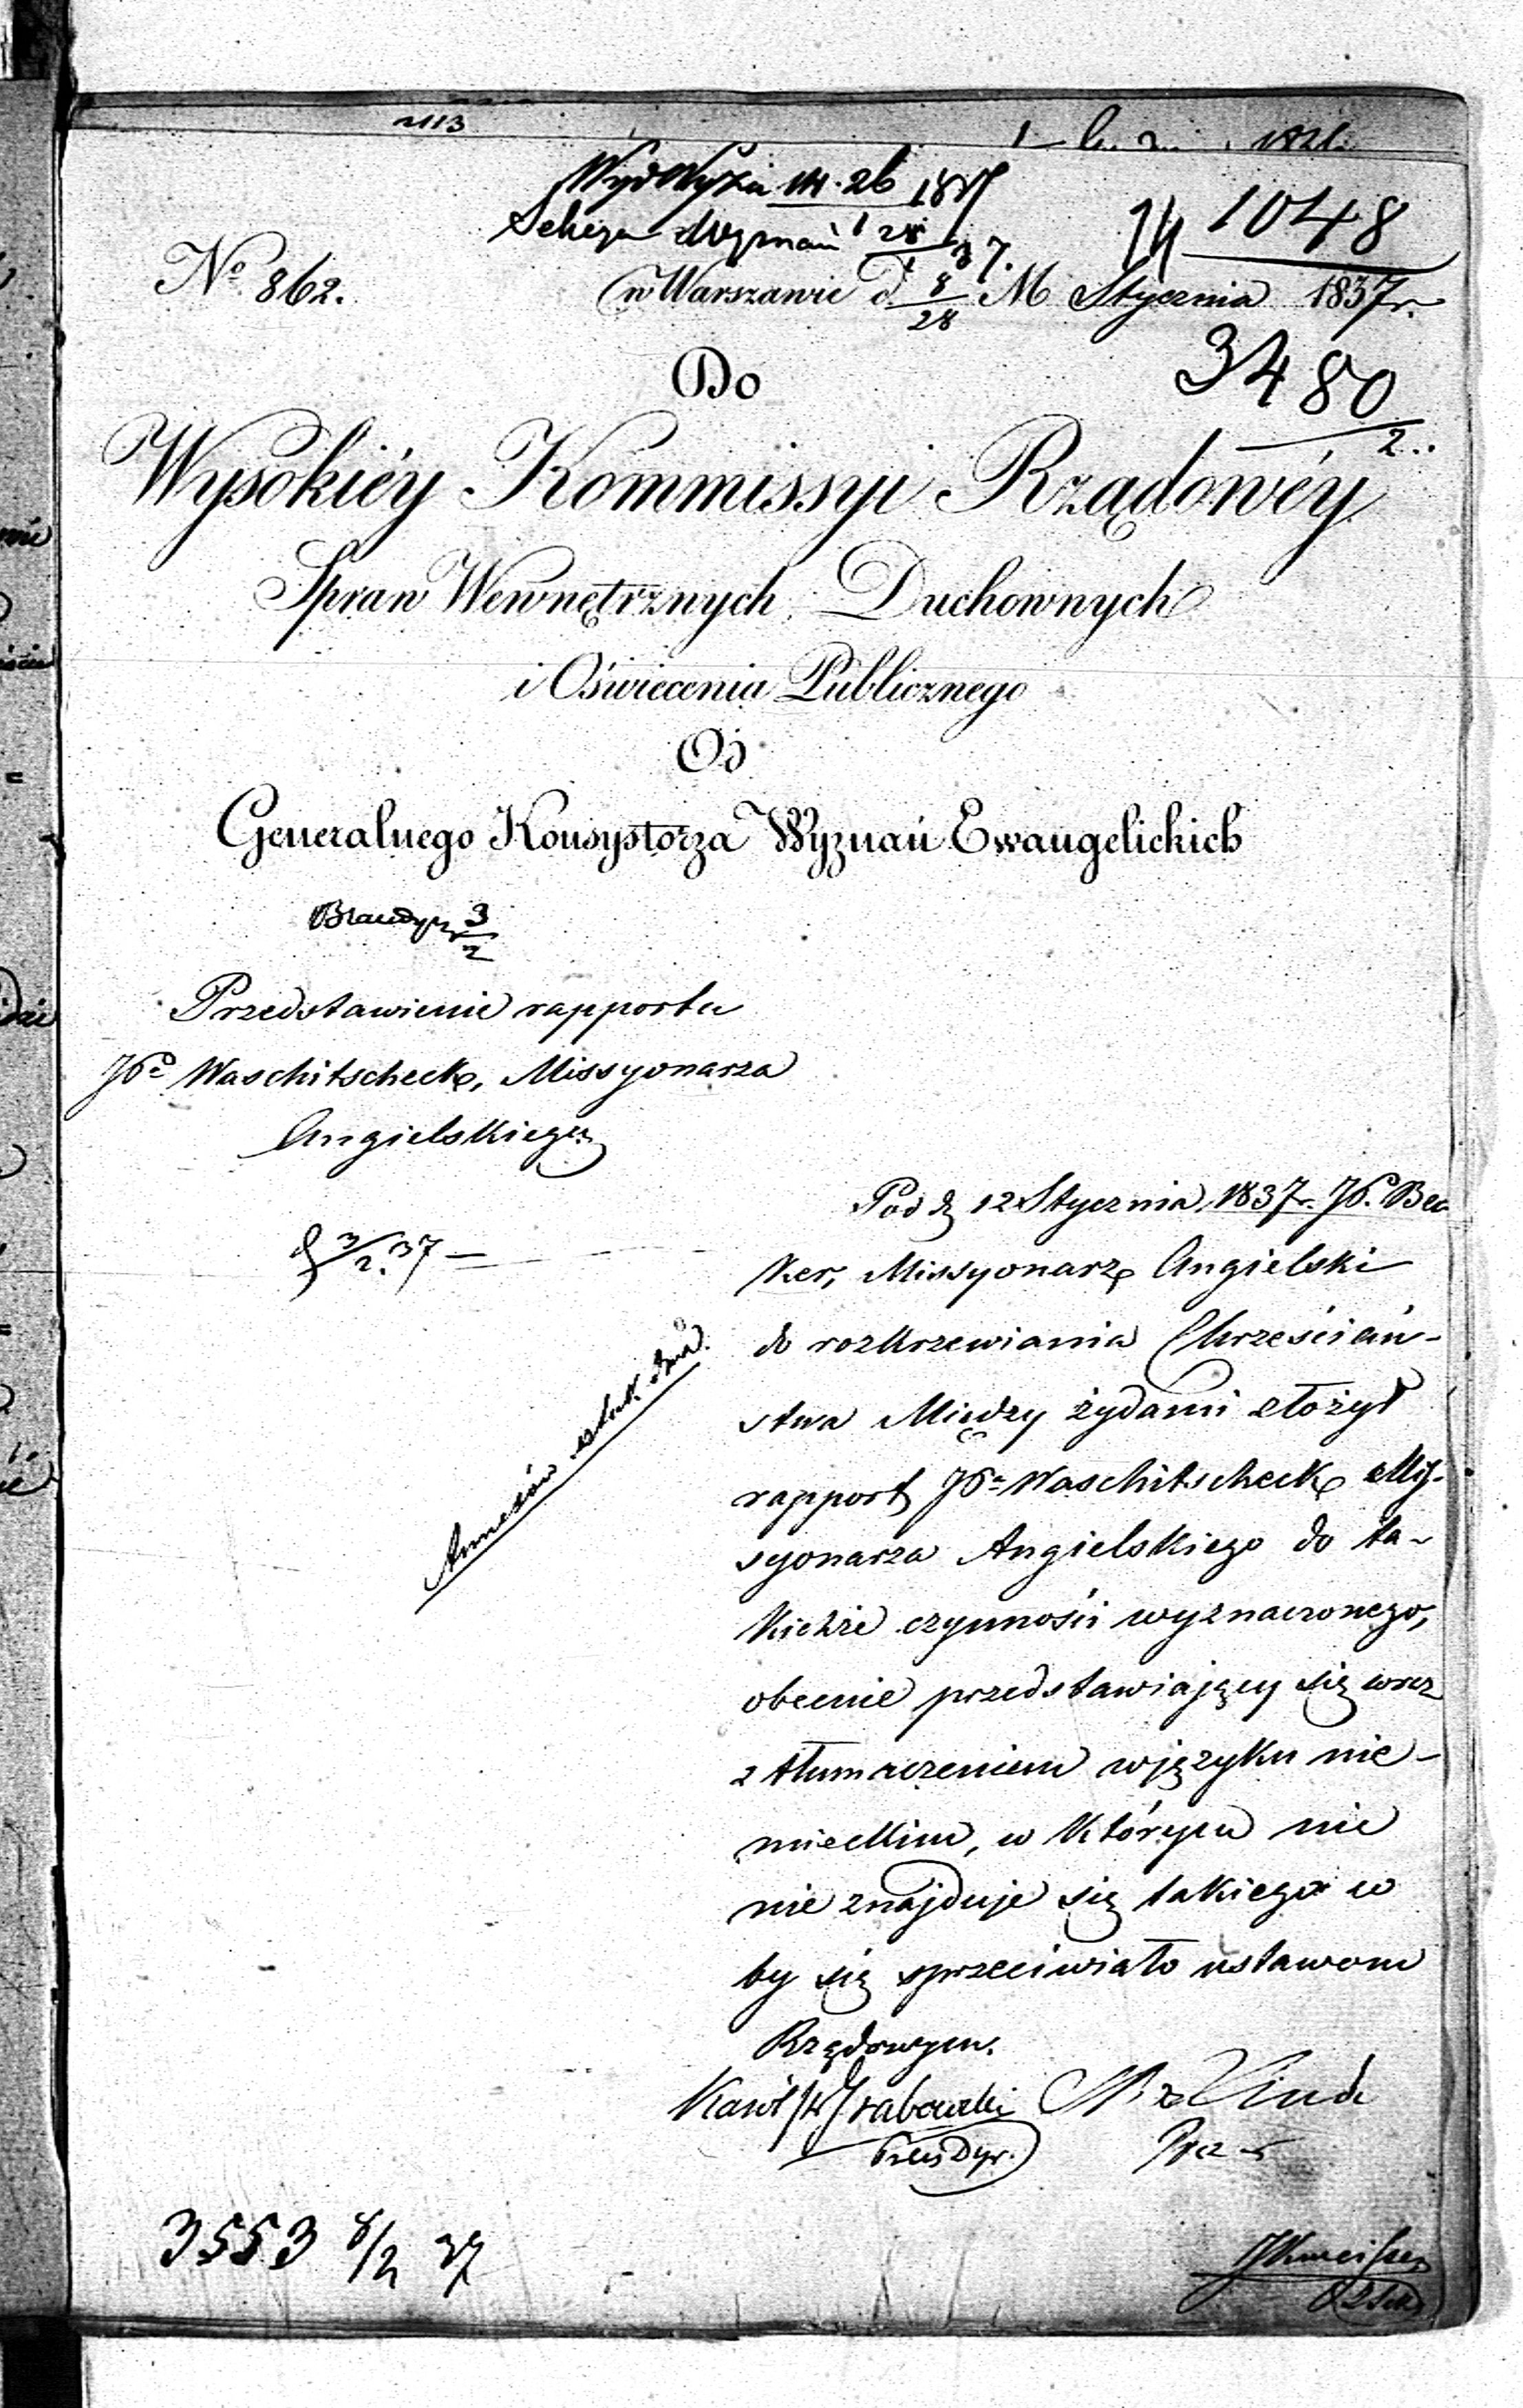 2113
1048
28
1
37.
No 862.
w Warszawie d. 8/28 M Stycznia 1837 r.
3480
2..
Do
Wysokiéy Kommissyi Rządowéy
Spraw Wewnętrznych Duchownych
i Oświecenia Publicznego
Od
Generalnego Konsystorza Wyznań Ewangelickich
3/2
Przedstawienie rapportu
JPa Waschitscheck, Missyonarza
Angielskiego
Pod d. 12 Stycznia 1837 r. JP. Bec
ker, Missyonarz Angielski
do rozkrzewiania Chrześciań-
stwa Między żydami złożył
rapport JPa Waschitscheck Mis-
syonarza Angielskiego do ta-
kichże czynności wyznaczonego,
obecnie przedstawiający się wraz
z tłumaczeniem w języku nie-
mieckim, w którym nic
nie znajduje się takiego co
by się sprzeciwiało ustawom
Rządowym.
3/2. 37 —
Annexów sztuk dwa.
Karol Hr Grabowski
Prez Dyr.
3553 8/2 37